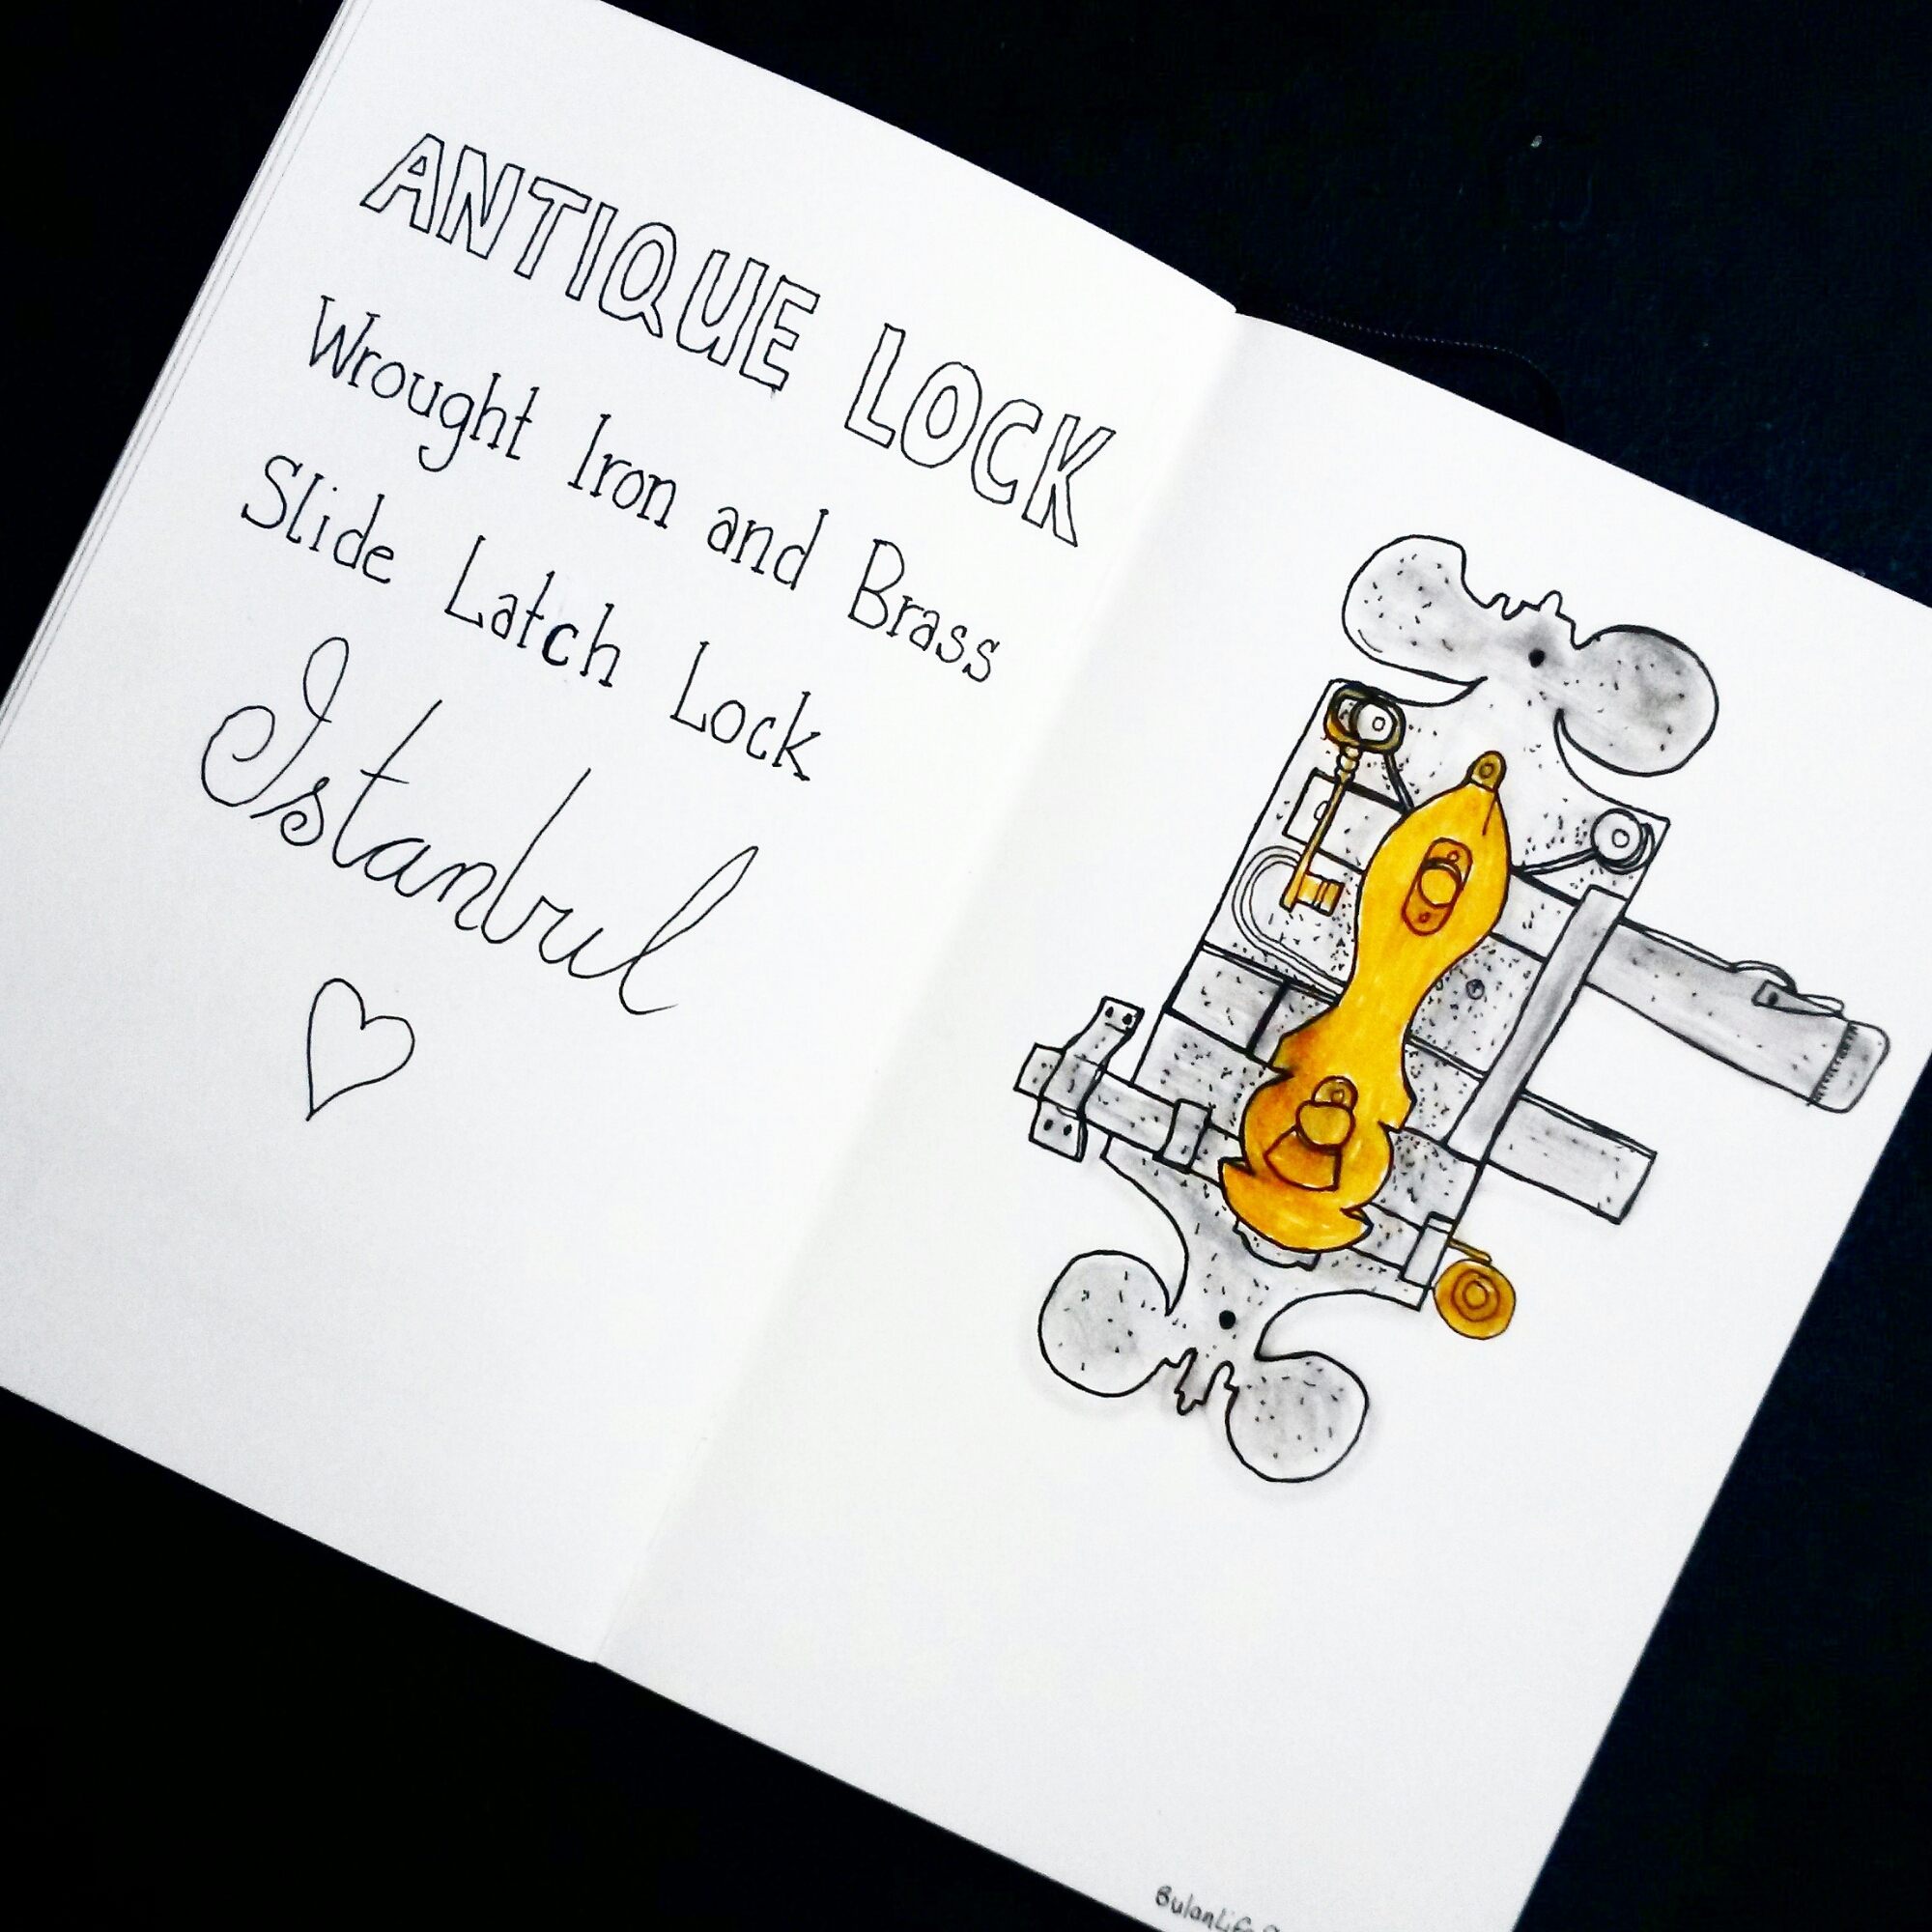 ANTIQUE LOCK
Wrought Iron and Brass
Slide Latch Lock
Istanbul